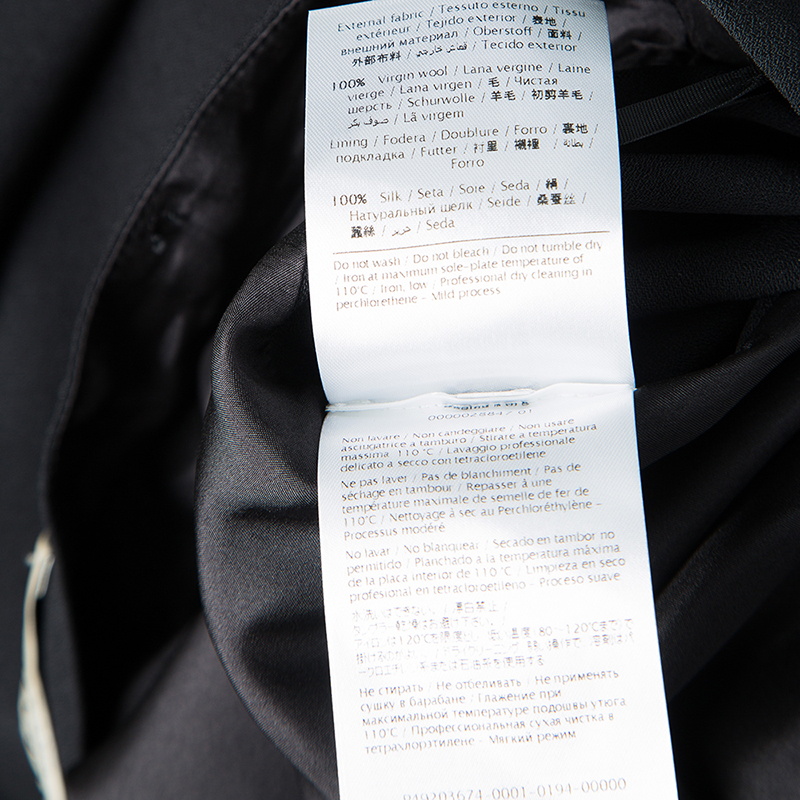 External fabric / Tessuto esterno / Tissu
extérieur / Tejido exterior / 表地 /
внешний материал / Oberstoff / 面料 /
外部布料 / قماش خارجي / Tecido exterior
100% Virgin wool / Lana vergine / Laine
vierge / Lana virgen / 毛 / Чистая
шерсть / Schurwolle / 羊毛 / 初剪羊毛 /
صوف بكر / Lã virgem
Lining / Fodera / Doublure / Forro / 裏地 /
подкладка / Futter / 衬里 / 襯裡 / بطانة /
Forro
100% Silk / Seta / Soie / Seda / 絹 /
Натуральный шелк / Seide / 桑蚕丝 /
蠶絲 / حرير / Seda
Do not wash / Do not bleach / Do not tumble dry
/ Iron at maximum sole-plate temperature of
110°C / Iron, low / Professional dry cleaning in
perchlorethene - Mild process
0000028847 01
Non lavare / Non candeggiare / Non usare
asciugatrice a tamburo / Stirare a temperatura
massima 110°C / Lavaggio professionale
delicato a secco con tetracloroetilene
Ne pas laver / Pas de blanchiment / Pas de
séchage en tambour / Repasser à une
température maximale de semelle de fer de
110°C / Nettoyage à sec au Perchloréthylène -
Processus modéré
No lavar / No blanquear / Secado en tambor no
permitido / Planchado a la temperatura máxima
de la placa interior de 110°C / Limpieza en seco
profesional en tetracloroetileno - Proceso suave
水洗いはできない / 漂白禁止 /
タンブラー乾燥はお避け下さい /
アイロンは120℃を限度とし、低い温度(80~120℃まで)で
石油系を使用する
Не стирать / Не отбеливать / Не применять
сушку в барабане / Глажение при
максимальной температуре подошвы утюга
110°C / Профессиональная сухая чистка в
тетрахлорэтилене - Мягкий режим
949203674-0001-0194-00000